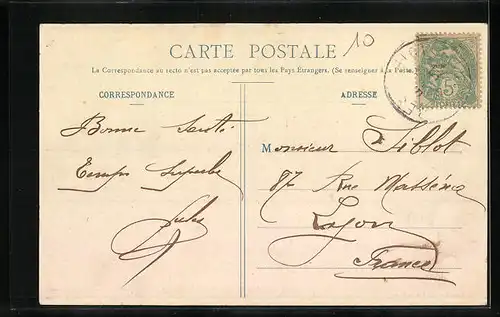 10
CARTE POSTALE
La Correspondance au recto n'est pas acceptée par tous les Pays Étrangers. (Se renseigner à la Poste.)
CORRESPONDANCE
ADRESSE
Bonne Santé
Temps Superbe
Jules
Monsieur Siblot
87 Rue Masséna
Lyon
France